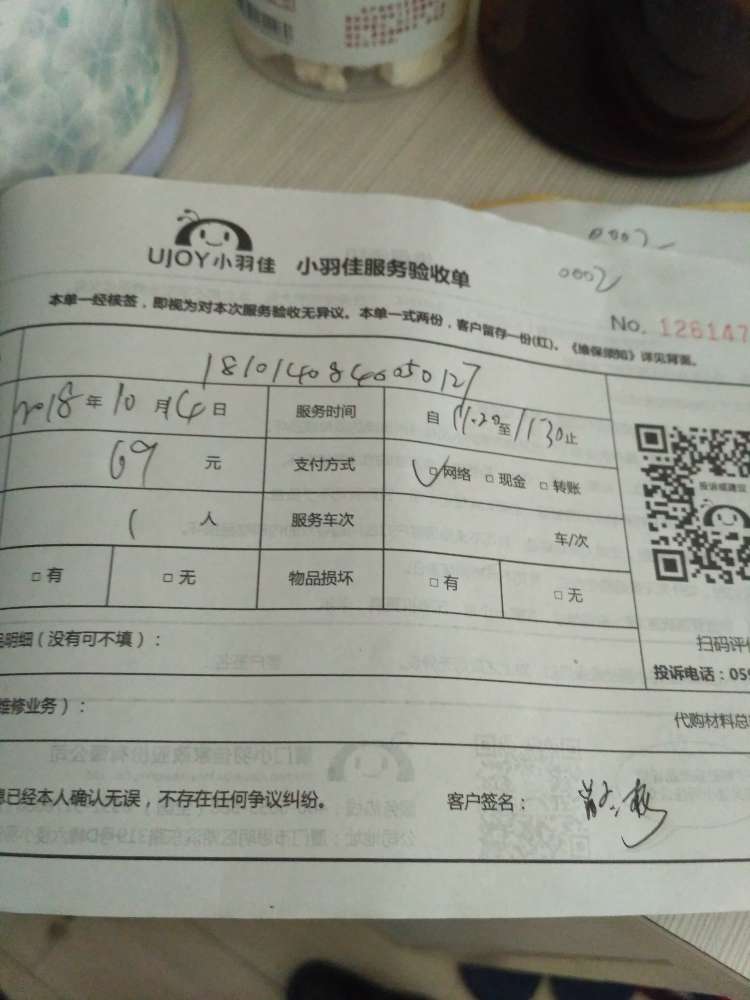 UJOY小羽佳 小羽佳服务验收单
0002
0002
本单一经核签，即视为对本次服务验收无异议。本单一式两份，客户留存一份(红)。《维保须知》详见背面。
No. 126147
1810140840050127
2018年10月4日 服务时间 自11.20至1130止
69元 支付方式 □网络 □现金 □转账
1人 服务车次 车/次
□有 □无 物品损坏 □有 □无
投诉或建议
扫码评价
投诉电话：059
明细（没有可不填）：
维修业务）：
代购材料总
息已经本人确认无误，不存在任何争议纠纷。 客户签名：